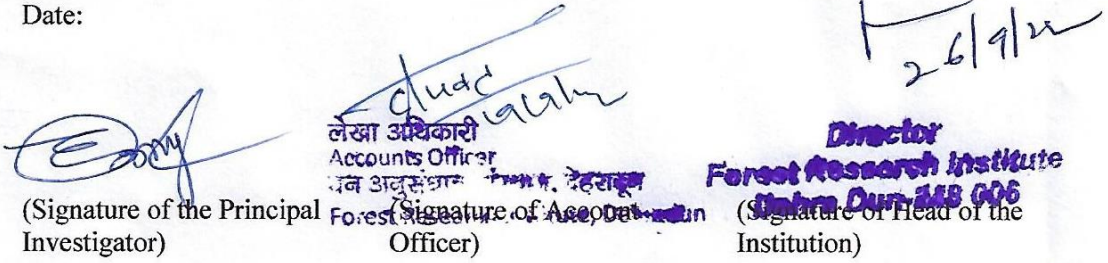 Date:
26/9/22
लेखा अधिकारी
Accounts Officer
वन अनुसंधान देहरादून
Forest Research Institute, Dehradun
Director
Forest Research Institute
Dehra Dun-248 006
(Signature of the Principal
Investigator)
(Signature of Account
Officer)
(Signature of Head of the
Institution)